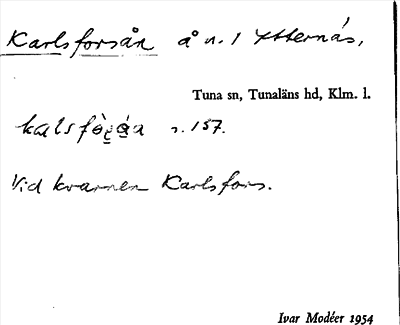 Karlsforsån å n. 1 Ytternäs,
Tuna sn, Tunaläns hd, Klm. l.
s. 157.
Vid kvarnen Karlsfors.
Ivar Modéer 1954